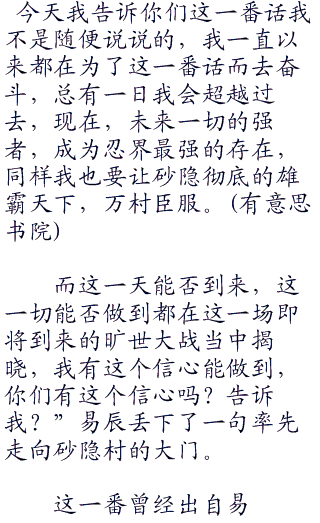 今天我告诉你们这一番话我
不是随便说说的，我一直以
来都在为了这一番话而去奋
斗，总有一日我会超越过
去，现在，未来一切的强
者，成为忍界最强的存在，
同样我也要让砂隐彻底的雄
霸天下，万村臣服。(有意思
书院)
而这一天能否到来，这
一切能否做到都在这一场即
将到来的旷世大战当中揭
晓，我有这个信心能做到，
你们有这个信心吗？告诉
我？”易辰丢下了一句率先
走向砂隐村的大门。
这一番曾经出自易